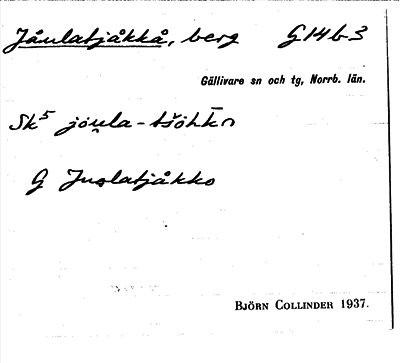 Jåulatjåkkå, berg G14b3
Gällivare sn och tg, Norrb. län.
Sk⁵ jou̯la-
G Juolatjåkko
BJÖRN COLLINDER 1937.